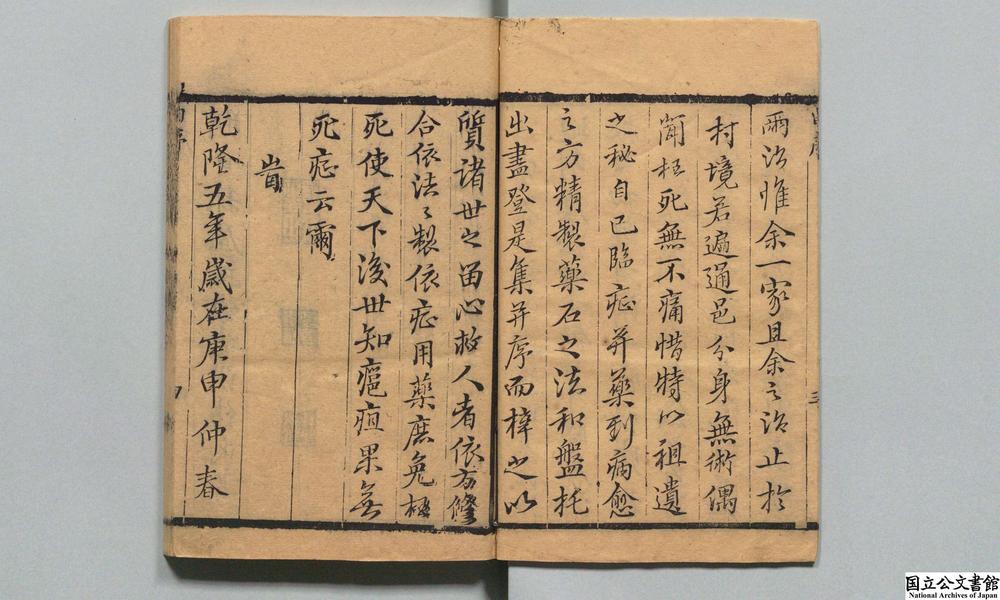 爾治惟余一家且余之治止於
村境若遍通邑分身無術偶
聞枉死無不痛惜特以祖遺
之秘自己臨症并藥到病愈
之方精製藥石之法和盤托
出盡登是集并序而梓之以
質諸世之留心救人者依方修
合依法之製依症用藥庶免枉
死使天下後世知瘟疽果無
死症云爾
旹
乾隆五年歲在庚申仲春
国立公文書館
National Archives of Japan